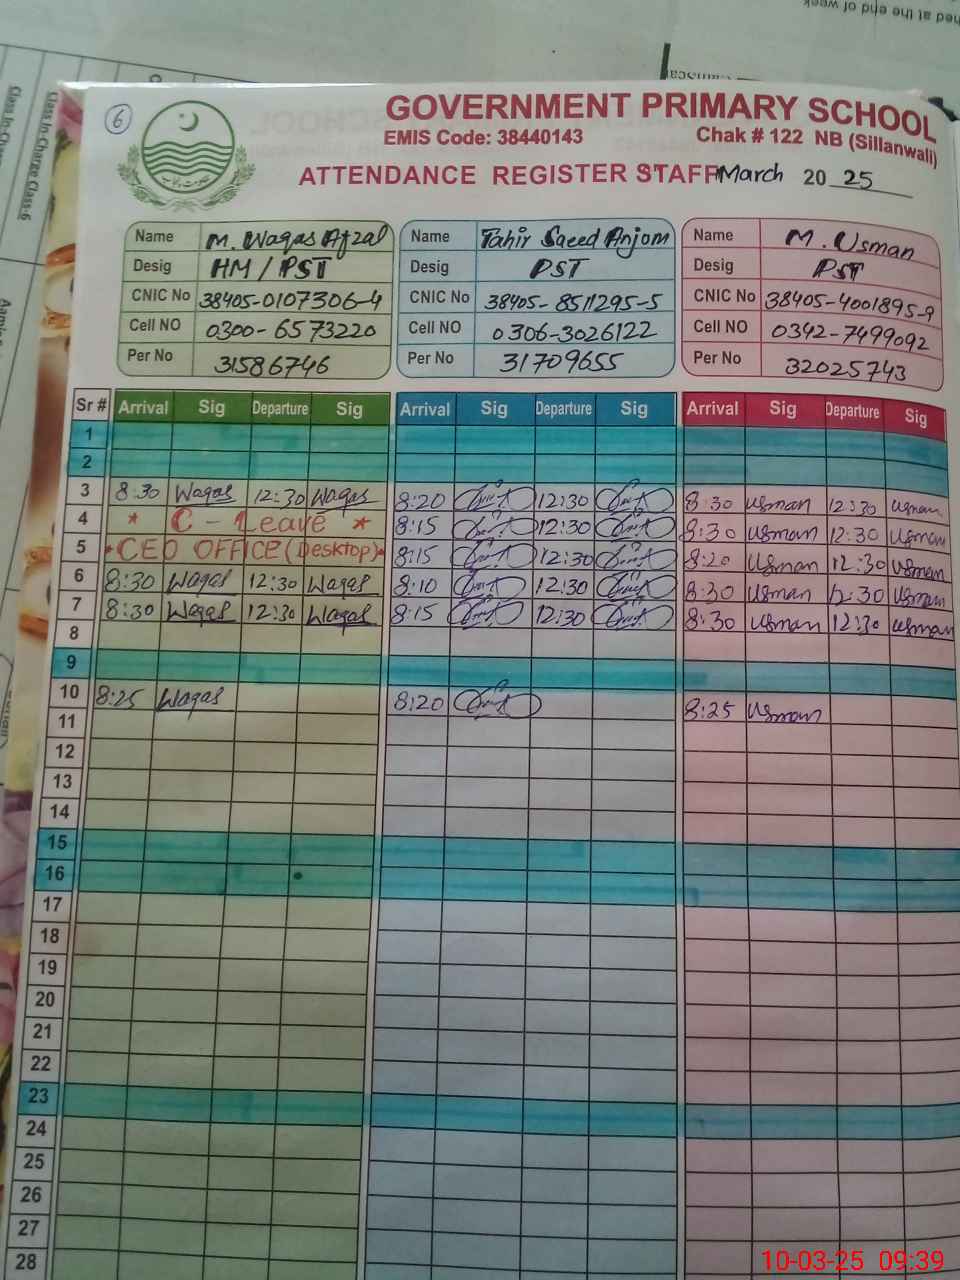 6
GOVERNMENT PRIMARY SCHOOL
EMIS Code: 38440143 Chak # 122 NB (Sillanwali)
ATTENDANCE REGISTER STAFF March 2025
Name M. Waqas Afzal Name Tahir Saeed Anjom Name M. Usman
Desig HM / PST Desig PST Desig PST
CNIC No 38405-0107306-4 CNIC No 38405-8511295-5 CNIC No 38405-4001895-9
Cell NO 0300-6573220 Cell NO 0306-3026122 Cell NO 0342-7499092
Per No 31586746 Per No 31709655 Per No 32025743
Sr # Arrival Sig Departure Sig Arrival Sig Departure Sig Arrival Sig Departure Sig
1
2
3 8:30 Waqas 12:30 Waqas 8:20 12:30 8:30 Usman 12:30 Usman
4 * C - Leave * 8:15 12:30 8:30 Usman 12:30 Usman
5 * CEO OFFICE (Desktop) * 8:15 12:30 8:20 Usman 12:30 Usman
6 8:30 Waqas 12:30 Waqas 8:10 12:30 8:30 Usman 12:30 Usman
7 8:30 Waqas 12:30 Waqas 8:15 12:30 8:30 Usman 12:30 Usman
8
9
10 8:25 Waqas 8:20 8:25 Usman
11
12
13
14
15
16
17
18
19
20
21
22
23
24
25
26
27
28
10-03-25 09:39